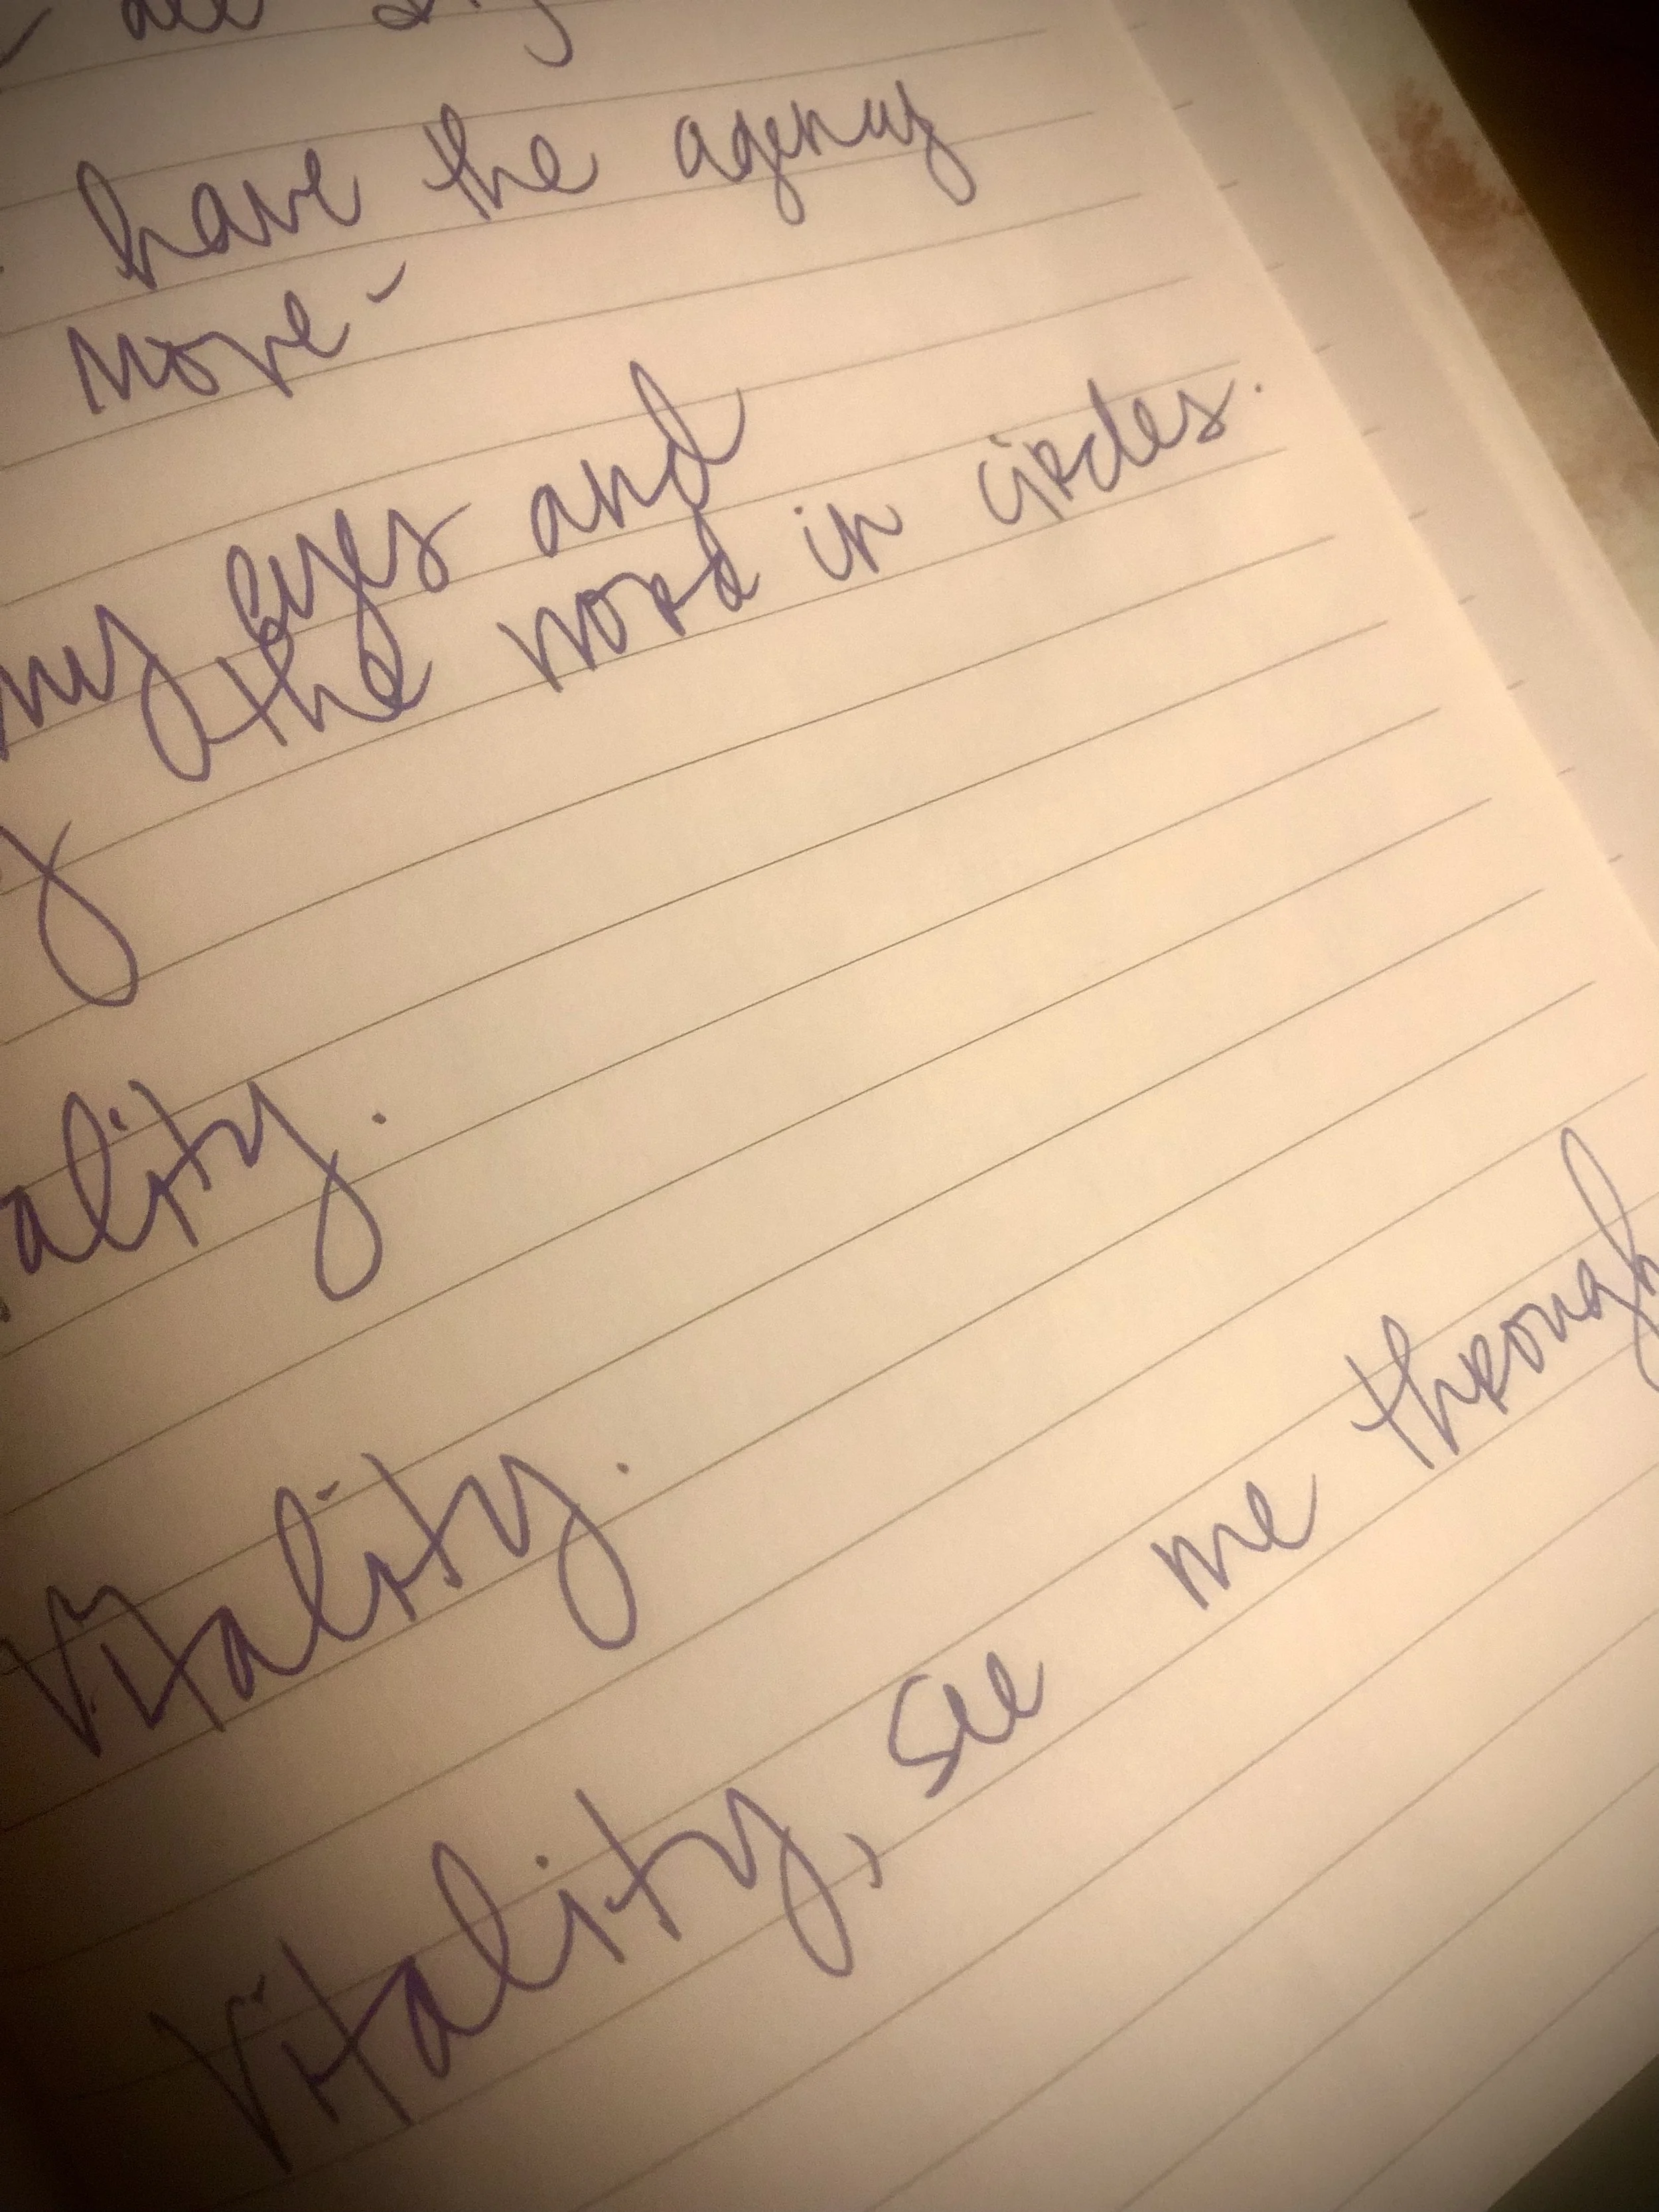 have the agency
move -
my eyes and
the word in circles.
y
ality.
Vitality.
Vitality, see me through